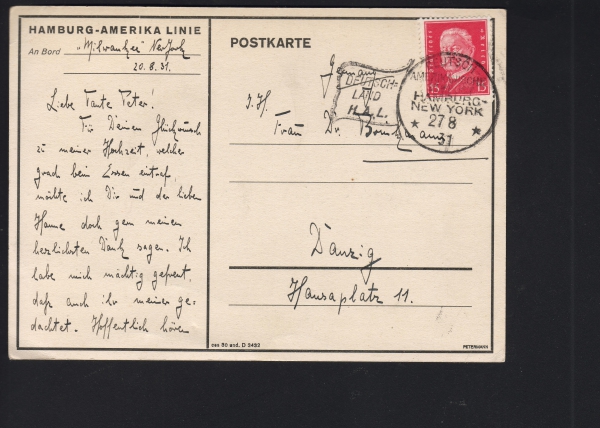 HAMBURG-AMERIKA LINIE
An Bord „Milwaukee" NewYork
20.8.31.
Liebe Tante Peter!
Für Deinen Glückwunsch
zu meiner Hochzeit, welcher
grad beim Essen eintraf,
möchte ich Dir und der lieben
Hanne doch gern meinen
herzlichsten Dank sagen. Ich
habe mich mächtig gefreut,
daß auch ihr meiner ge=
dachtet. Hoffentlich hören
POSTKARTE
Germany
I.H.
Frau Dr.
Danzig
Hansaplatz 11.
DEUTSCH-
LAND
H.A.L.
15 15
HAMBURG-
NEW YORK
★ 27 8 ★
31
css 80 and. D 2432
PETERMANN